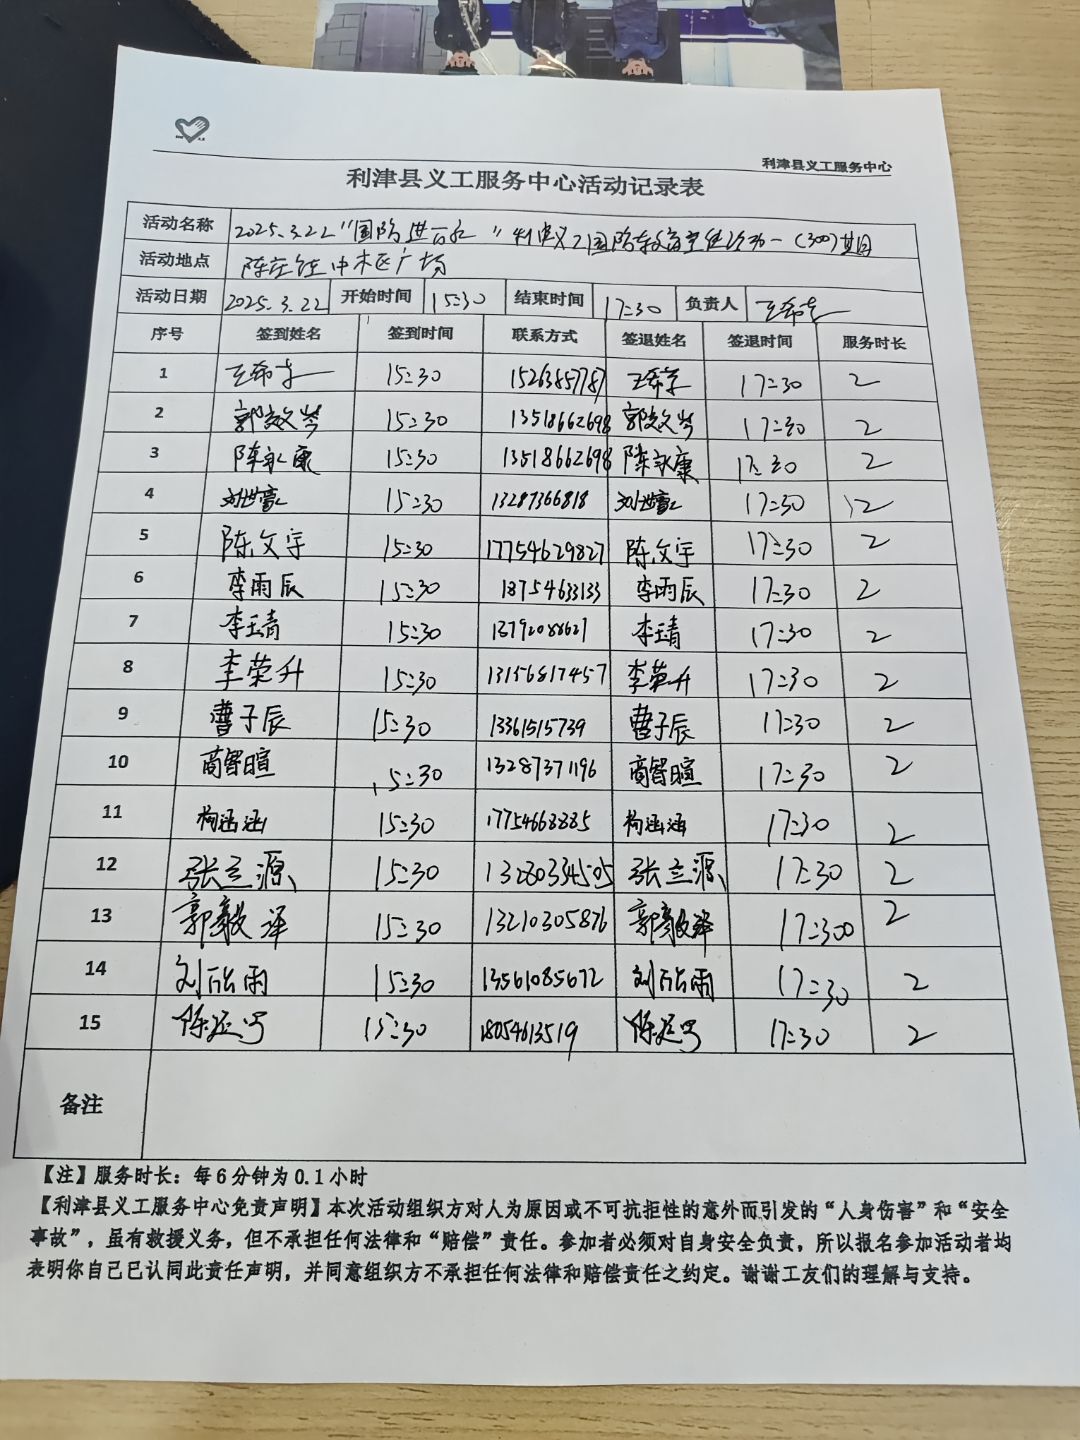 利津县义工服务中心
利津县义工服务中心活动记录表
活动名称 2025.3.22“国防进百家”利津义工国防教育宣传活动一(300)期
活动地点 陈庄镇中木区广场
活动日期 2025.3.22 开始时间 15:30 结束时间 17:30 负责人 王希
序号 签到姓名 签到时间 联系方式 签退姓名 签退时间 服务时长
1 王希 15:30 15263857787 王希 17:30 2
2 郭效岑 15:30 13518662698 郭效岑 17:30 2
3 陈永康 15:30 13518662698 陈永康 17:30 2
4 刘世豪 15:30 13287366818 刘世豪 17:30 2
5 陈文宇 15:30 17754629827 陈文宇 17:30 2
6 李雨辰 15:30 18754633133 李雨辰 17:30 2
7 李玉清 15:30 13792088621 李靖 17:30 2
8 李荣升 15:30 13156817457 李荣升 17:30 2
9 曹子辰 15:30 13361515739 曹子辰 17:30 2
10 商智暄 15:30 13287371196 商智暄 17:30 2
11 涵涵 15:30 17754668885 涵涵 17:30 2
12 张立源 15:30 13280334505 张立源 17:30 2
13 郭毅泽 15:30 13210305876 郭毅泽 17:300 2
14 刘欣雨 15:30 13561085672 刘欣雨 17:30 2
15 陈延 15:30 18054613519 陈延 17:30 2
备注
【注】服务时长：每6分钟为0.1小时
【利津县义工服务中心免责声明】本次活动组织方对人为原因或不可抗拒性的意外而引发的“人身伤害”和“安全
事故”，虽有救援义务，但不承担任何法律和“赔偿”责任。参加者必须对自身安全负责，所以报名参加活动者均
表明你自己已认同此责任声明，并同意组织方不承担任何法律和赔偿责任之约定。谢谢工友们的理解与支持。